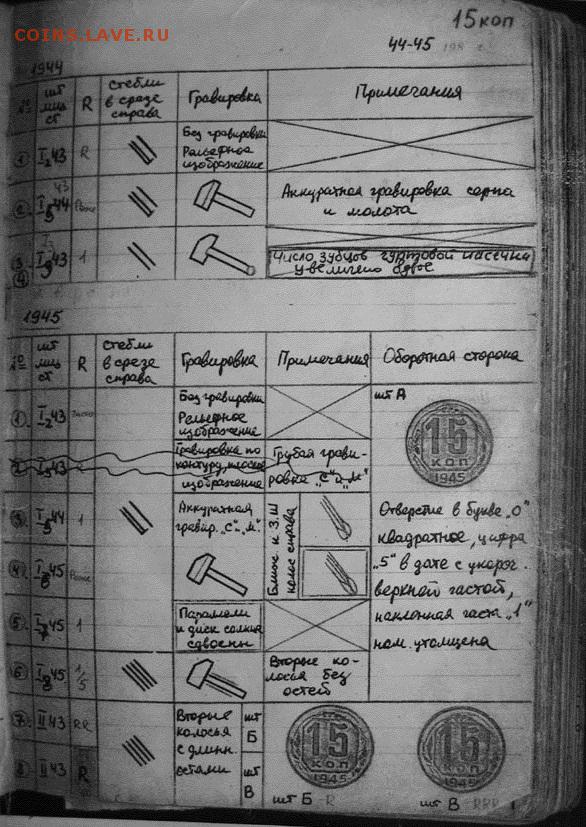 COINS.LAVE.RU
15 коп
44-45 198 г.
1944
№ шт лиц ст R стебли в срезе справа Гравировка Примечания
1 I 2 43 R Без гравировки
Рельефное
изображение
2 I 5 44 43 Аккуратная гравировка серпа
и молота
3 I 43 1 Число зубцов гуртовой насечки
4 увеличено вдвое
1945
№ шт лиц ст R стебли в срезе справа Гравировка Примечания Оборотная сторона
1 I 2 43 Без гравировки
Рельефное
изображение
шт А
15
КОП
1945
2 I 43 Гравировка по
контуру, плоское
изображение
Грубая грави-
ровка "С" и "М"
3 I 5 44 1 Аккуратная
гравир. "С" и "М"
Ближе к З.Ш
колос справа
4 I 6 45
5 I 7 45 1 Параллели
и диск солнца
сдвоены
Отверстие в букве "О"
квадратное, цифра
"5" в дате с укороч.
верхней частой,
наклонная часть "1"
нам. утолщена
6 I 8 45 1/5 Вторые ко-
лосья без
остей
7 II 43 RR Вторые
колосья
с длинн.
остами
шт
Б
8 II 43 R шт
В
15
КОП
1945
шт Б R
15
КОП
1945
шт В RRR